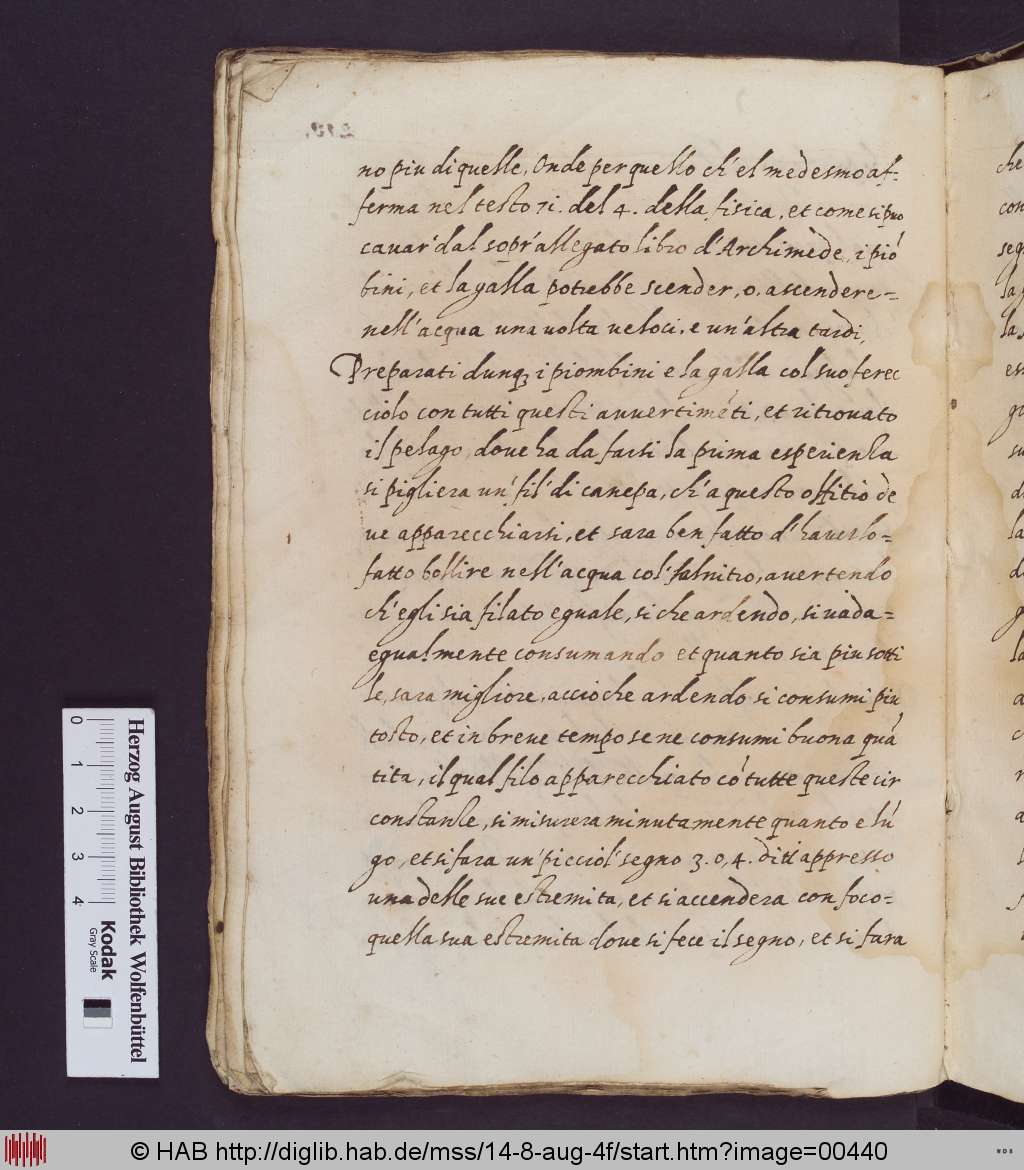 no piu di quelle. Onde per quello ch'el medesmo af-
ferma nel testo 71. del 4. della fisica, et come si puo
cavar' dal sopr'allegato libro d'Archimede, i pió
bini, et la galla potrebbe scender, o, ascendere-
nell'acqua una volta veloci, e un'altra tardi,
Preparati dunq; i piombini e la galla col suo ferec
ciolo con tutti questi avvertiméti, et ritrovato
il pelago, dove ha da farsi la prima esperienza
si pigliera un' fil' di canepa, ch'a questo offitio de
ve apparecchiarsi, et sara ben fatto d'haverlo-
fatto bollire nell'acqua col' salnitro, avertendo
ch'egli sia filato eguale, si che ardendo, si vada-
egualmente consumando et quanto sia piu sotti
le, sara migliore, accio che ardendo si consumi piu
tosto, et in breve tempo se ne consumi buona quá
tita, il qual filo apparecchiato có tutte queste cir
constanze, si misurera minutamente quanto e lú
go, et si fara un' picciol' segno 3. o, 4. diti appresso
una delle sue estremita, et si accendera con foco-
quella sua estremita dove si fece il segno, et si fara
Herzog August Bibliothek Wolfenbüttel
Kodak
Gray Scale
0 1 2 3 4
© HAB http://diglib.hab.de/mss/14-8-aug-4f/start.htm?image=00440